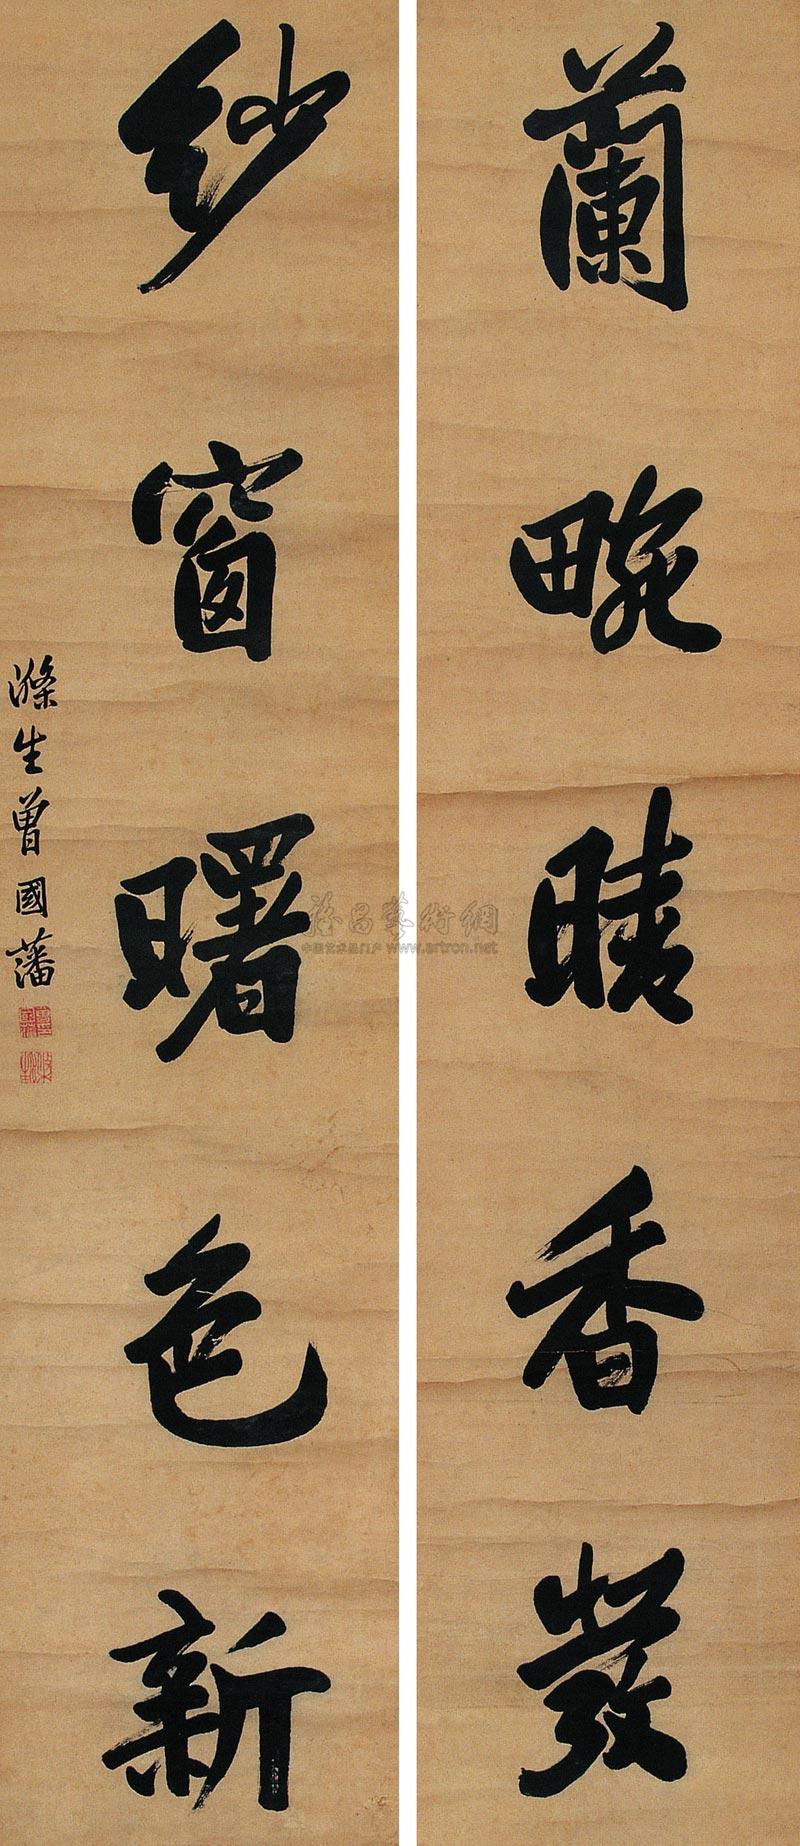 蘭畹晴香發
紗窗曙色新
滌生曾國藩
雅昌藝術網
中国艺术品门户 www.artron.net